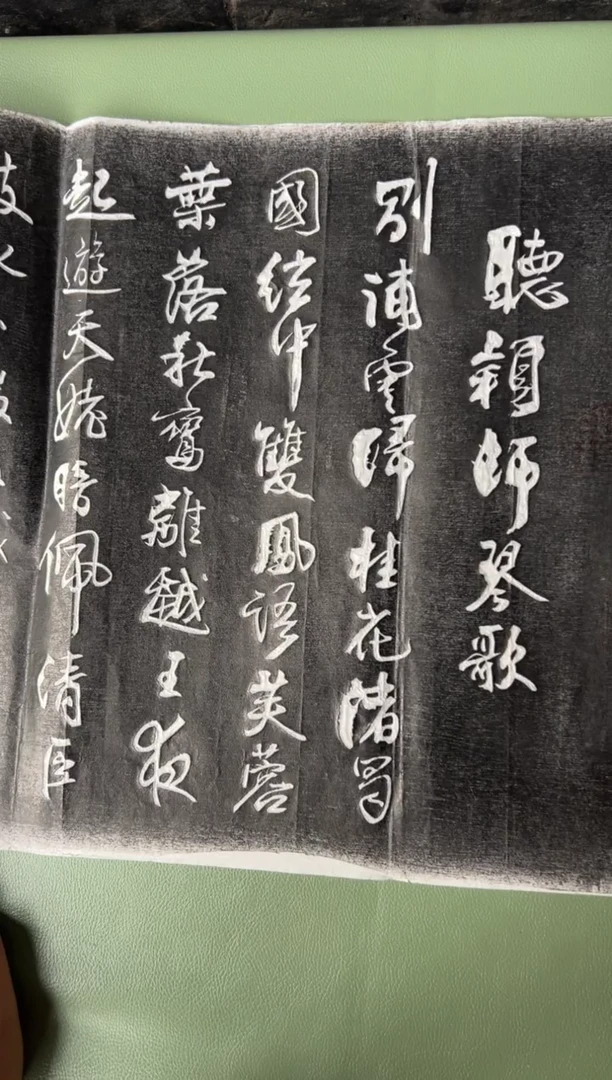 聽穎師琴歌
別浦雲歸桂花渚蜀
國絃中雙鳳語芙蓉
葉落秋鸞離越王夜
起遊天姥暗佩清臣